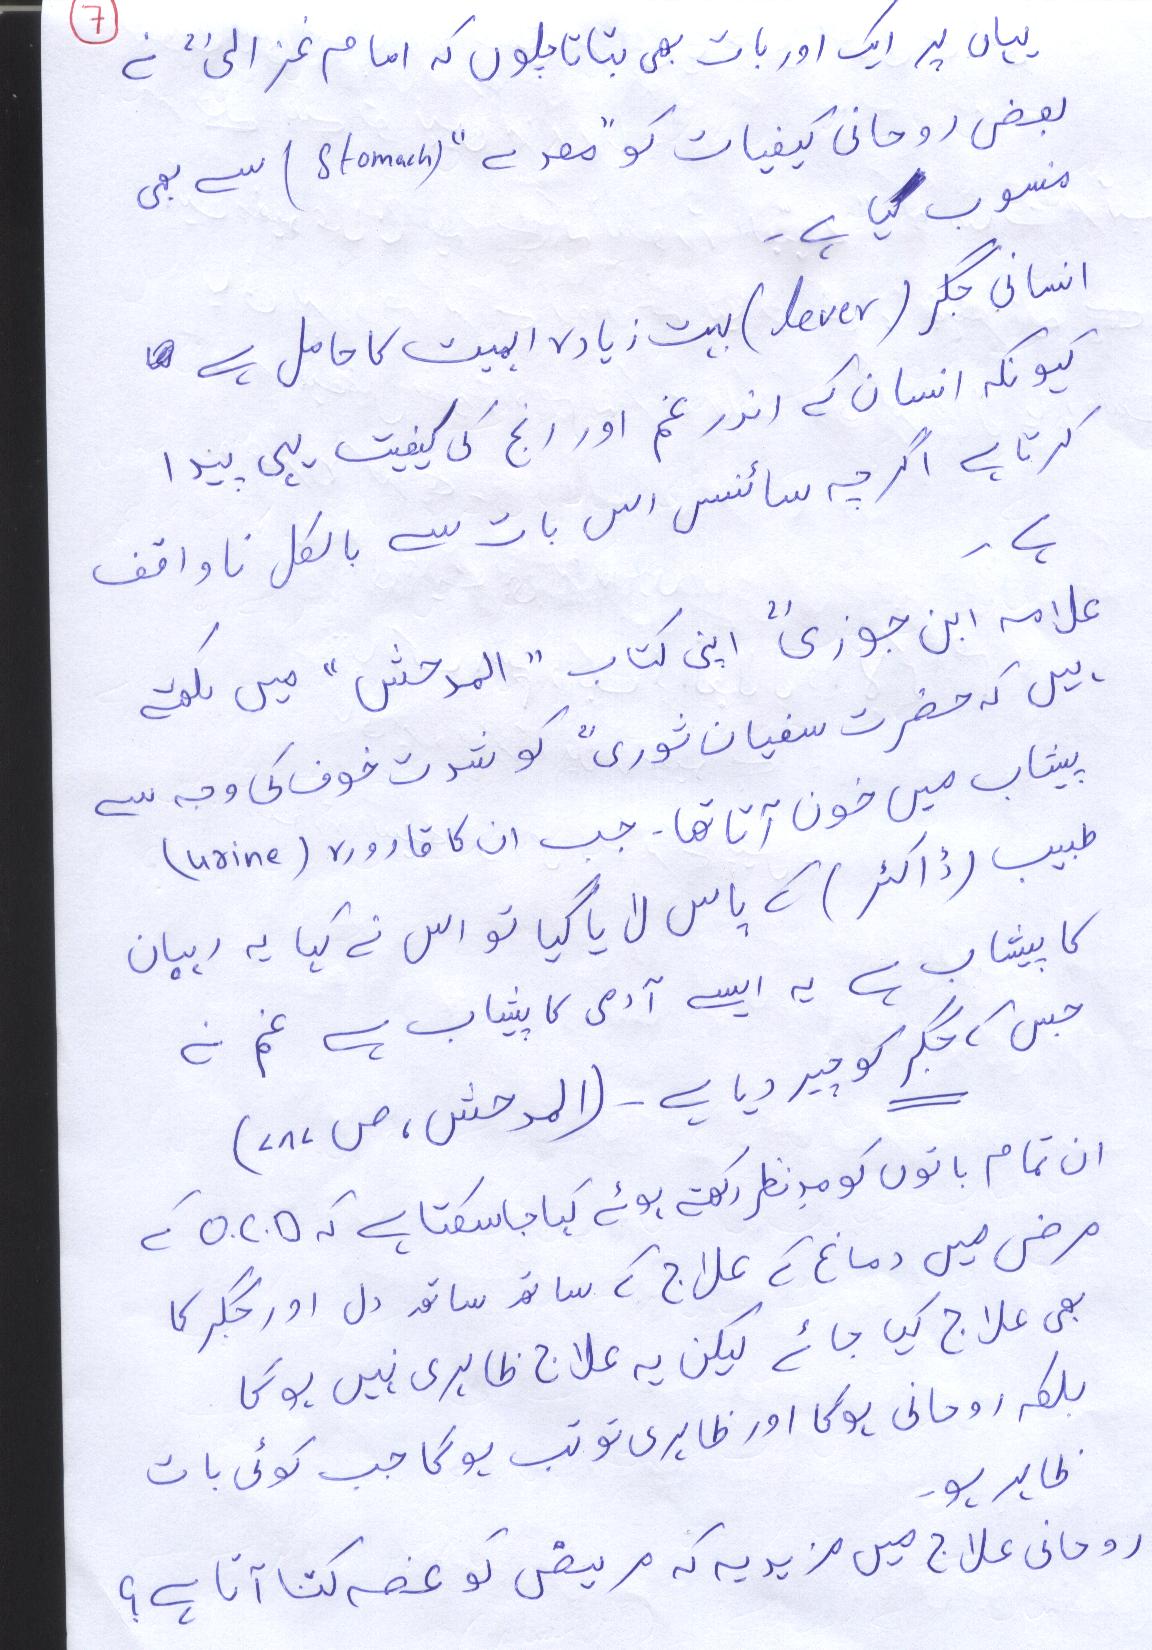 7
یہاں پر ایک اور بات بھی بتاتا چلوں کہ امام غزالیؒ نے
بعض روحانی کیفیات کو "معدے" (Stomach) سے بھی
منسوب کیا ہے۔
انسانی جگر (lever) بہت زیادہ اہمیت کا حامل ہے
کیونکہ انسان کے اندر غم اور رنج کی کیفیت یہی پیدا
کرتا ہے اگرچہ سائنس اس بات سے بالکل ناواقف
ہے۔
علامہ ابن جوزیؒ اپنی کتاب "المدحش" میں لکھتے
ہیں کہ حضرت سفیان ثوریؒ کو شدت خوف کی وجہ سے
پیشاب میں خون آتا تھا۔ جب ان کا قارورہ (urine)
طبیب (ڈاکٹر) کے پاس لایا گیا تو اس نے کہا یہ رہبان
کا پیشاب ہے یہ ایسے آدمی کا پیشاب ہے غم نے
جس کے جگر کو چیر دیا ہے۔ (المدحش، ص ۷۸۷)
ان تمام باتوں کو مدِنظر رکھتے ہوئے کہا جا سکتا ہے کہ O.C.D کے
مرض میں دماغ کے علاج کے ساتھ ساتھ دل اور جگر کا
بھی علاج کیا جائے لیکن یہ علاج ظاہری نہیں ہوگا
بلکہ روحانی ہوگا اور ظاہری تو تب ہوگا جب کوئی بات
ظاہر ہو۔
روحانی علاج میں مزید یہ کہ مریض کو غصہ کتنا آتا ہے؟